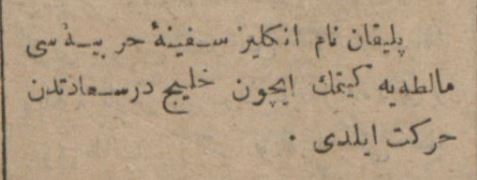 پلیقان نام انكلیز سفینهٔ حربیهٔ سی
مالطه یه كیتمك ایچون خلیج درسعادتدن
حركت ایلدی .